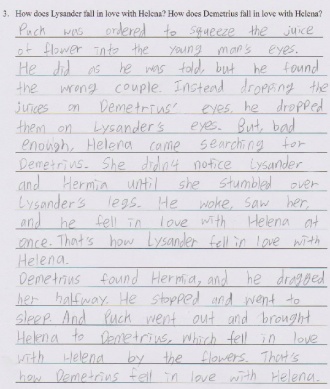 3. How does Lysander fall in love with Helena? How does Demetrius fall in love with Helena?
Puck was ordered to squeeze the juice
of flower into the young man's eyes.
He did as he was told, but he found
the wrong couple. Instead dropping the
juices on Demetrius' eyes, he dropped
them on Lysander's eyes. But, bad
enough, Helena came searching for
Demetrius. She didn't notice Lysander
and Hermia until she stumbled over
Lysander's legs. He woke, saw her,
and he fell in love with Helena at
once. That's how Lysander fell in love with
Helena.
Demetrius found Hermia, and he dragged
her halfway. He stopped and went to
sleep. And Puck went out and brought
Helena to Demetrius, which fell in love
with Helena by the flowers. That's
how Demetrius fell in love with Helena.